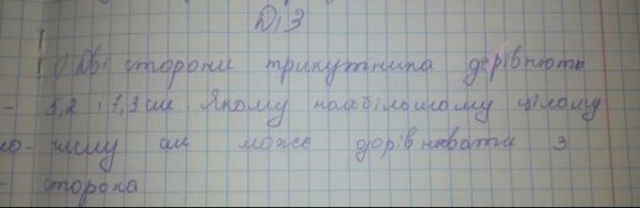 Д/З
1) Дві сторони трикутника дорівнюють
5,2 і 7,3 см. Якому найбільшому цілому
числу см може дорівнювати 3
сторона